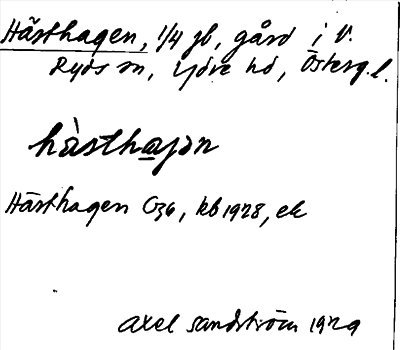 Hästhagen, 1/4 jb, gård i V.
Ryds sn, Ydre hd, Österg.l.
hàsthaɡən
Hästhagen G36, kb 1928, ek
Axel Sandström 1929